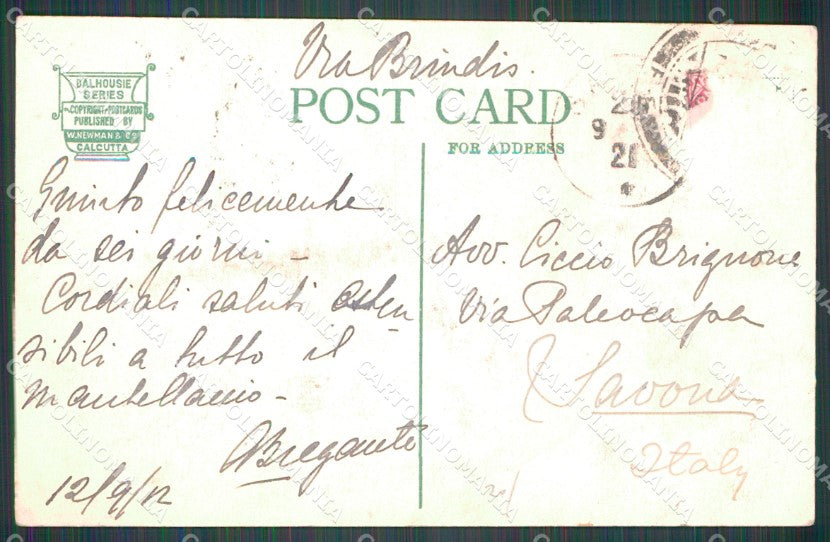 Via Brindisi.
POST CARD
FOR ADDRESS
DALHOUSIE
SERIES
COPYRIGHT-POSTCARDS
PUBLISHED BY
W. NEWMAN & Co
CALCUTTA
9
21
Giunto felicemente
da sei giorni -
Cordiali saluti esten
sibili a tutto il
-
Bregante
12/9/12
Avv. Ciccio Brignone
Via Paleocapa
Savona
Italy
CARTOLINOMANIA